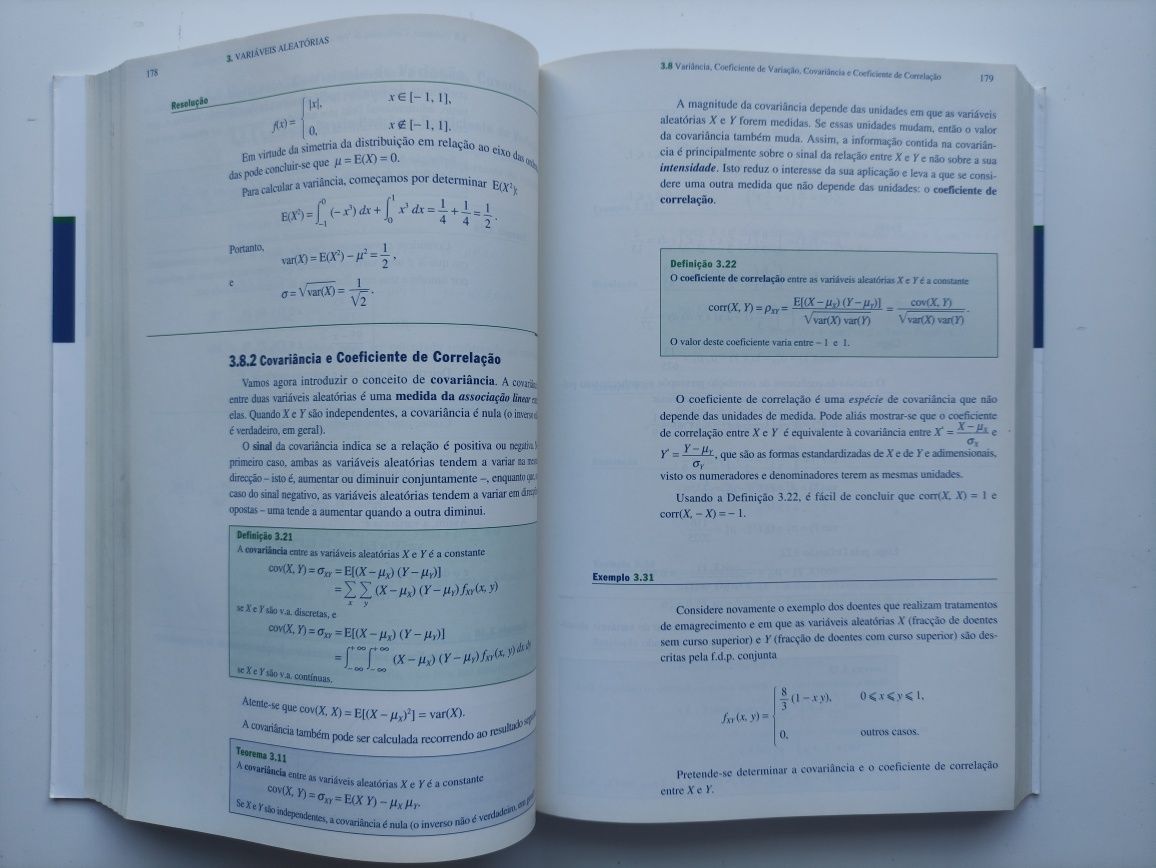 178
3. VARIÁVEIS ALEATÓRIAS
Resolução
f(x) = { |x|, x ∈ [– 1, 1],
0, x ∉ [– 1, 1].
Em virtude da simetria da distribuição em relação ao eixo das
das pode concluir-se que μ = E(X) = 0.
Para calcular a variância, começamos por determinar E(X²):
E(X²) = ∫₋₁⁰ (– x³) dx + ∫₀¹ x³ dx = 1/4 + 1/4 = 1/2 .
Portanto,
var(X) = E(X²) – μ² = 1/2 ,
e
σ = √var(X) = 1/√2 .
3.8.2 Covariância e Coeficiente de Correlação
Vamos agora introduzir o conceito de covariância. A
entre duas variáveis aleatórias é uma medida da associação linear
elas. Quando X e Y são independentes, a covariância é nula (o inverso
é verdadeiro, em geral).
O sinal da covariância indica se a relação é positiva ou negativa.
primeiro caso, ambas as variáveis aleatórias tendem a variar na
direcção – isto é, aumentar ou diminuir conjuntamente –, enquanto que,
caso do sinal negativo, as variáveis aleatórias tendem a variar em
opostas – uma tende a aumentar quando a outra diminui.
Definição 3.21
A covariância entre as variáveis aleatórias X e Y é a constante
cov(X, Y) = σXY = E[(X – μX) (Y – μY)]
= Σx Σy (X – μX) (Y – μY) fXY(x, y)
se X e Y são v.a. discretas, e
cov(X, Y) = σXY = E[(X – μX) (Y – μY)]
= ∫₋∞⁺∞ ∫₋∞⁺∞ (X – μX) (Y – μY) fXY(x, y) dx dy
se X e Y são v.a. contínuas.
Atente-se que cov(X, X) = E[(X – μX)²] = var(X).
A covariância também pode ser calculada recorrendo ao resultado
Teorema 3.11
A covariância entre as variáveis aleatórias X e Y é a constante
cov(X, Y) = σXY = E(X Y) – μX μY.
Se X e Y são independentes, a covariância é nula (o inverso não é verdadeiro, em
3.8 Variância, Coeficiente de Variação, Covariância e Coeficiente de Correlação
179
A magnitude da covariância depende das unidades em que as variáveis
aleatórias X e Y forem medidas. Se essas unidades mudam, então o valor
da covariância também muda. Assim, a informação contida na covariân-
cia é principalmente sobre o sinal da relação entre X e Y e não sobre a sua
intensidade. Isto reduz o interesse da sua aplicação e leva a que se consi-
dere uma outra medida que não depende das unidades: o coeficiente de
correlação.
Definição 3.22
O coeficiente de correlação entre as variáveis aleatórias X e Y é a constante
corr(X, Y) = ρXY = E[(X – μX) (Y – μY)] / √var(X) var(Y) = cov(X, Y) / √var(X) var(Y) .
O valor deste coeficiente varia entre – 1 e 1.
O coeficiente de correlação é uma espécie de covariância que não
depende das unidades de medida. Pode aliás mostrar-se que o coeficiente
de correlação entre X e Y é equivalente à covariância entre X' = (X – μX)/σX e
Y' = (Y – μY)/σY, que são as formas estandardizadas de X e de Y e adimensionais,
visto os numeradores e denominadores terem as mesmas unidades.
Usando a Definição 3.22, é fácil de concluir que corr(X, X) = 1 e
corr(X, – X) = – 1.
Exemplo 3.31
Considere novamente o exemplo dos doentes que realizam tratamentos
de emagrecimento e em que as variáveis aleatórias X (fracção de doentes
sem curso superior) e Y (fracção de doentes com curso superior) são des-
critas pela f.d.p. conjunta
fXY(x, y) = { 8/3 (1 – x y), 0 ⩽ x ⩽ y ⩽ 1,
0, outros casos.
Pretende-se determinar a covariância e o coeficiente de correlação
entre X e Y.